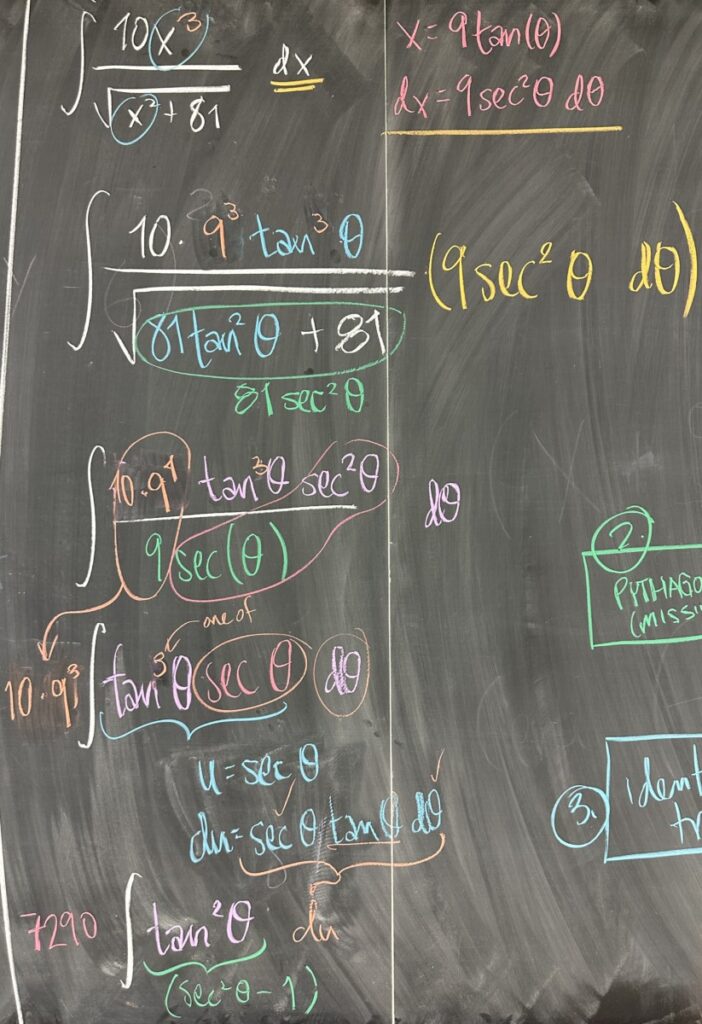 ∫ 10x³ / √(x² + 81) dx
x = 9tan(θ)
dx = 9sec²θ dθ
∫ 10 · 9³ tan³θ / √(81tan²θ + 81) (9sec²θ dθ)
81sec²θ
∫ 10 · 9⁴ tan³θ sec²θ / 9sec(θ) dθ
one of
10 · 9³ ∫ tan³θ sec θ dθ
u = sec θ
du = sec θ tan θ dθ
7290 ∫ tan²θ du
(sec²θ - 1)
2.
PYTHAGO
(MISSI
3.
ident
tr